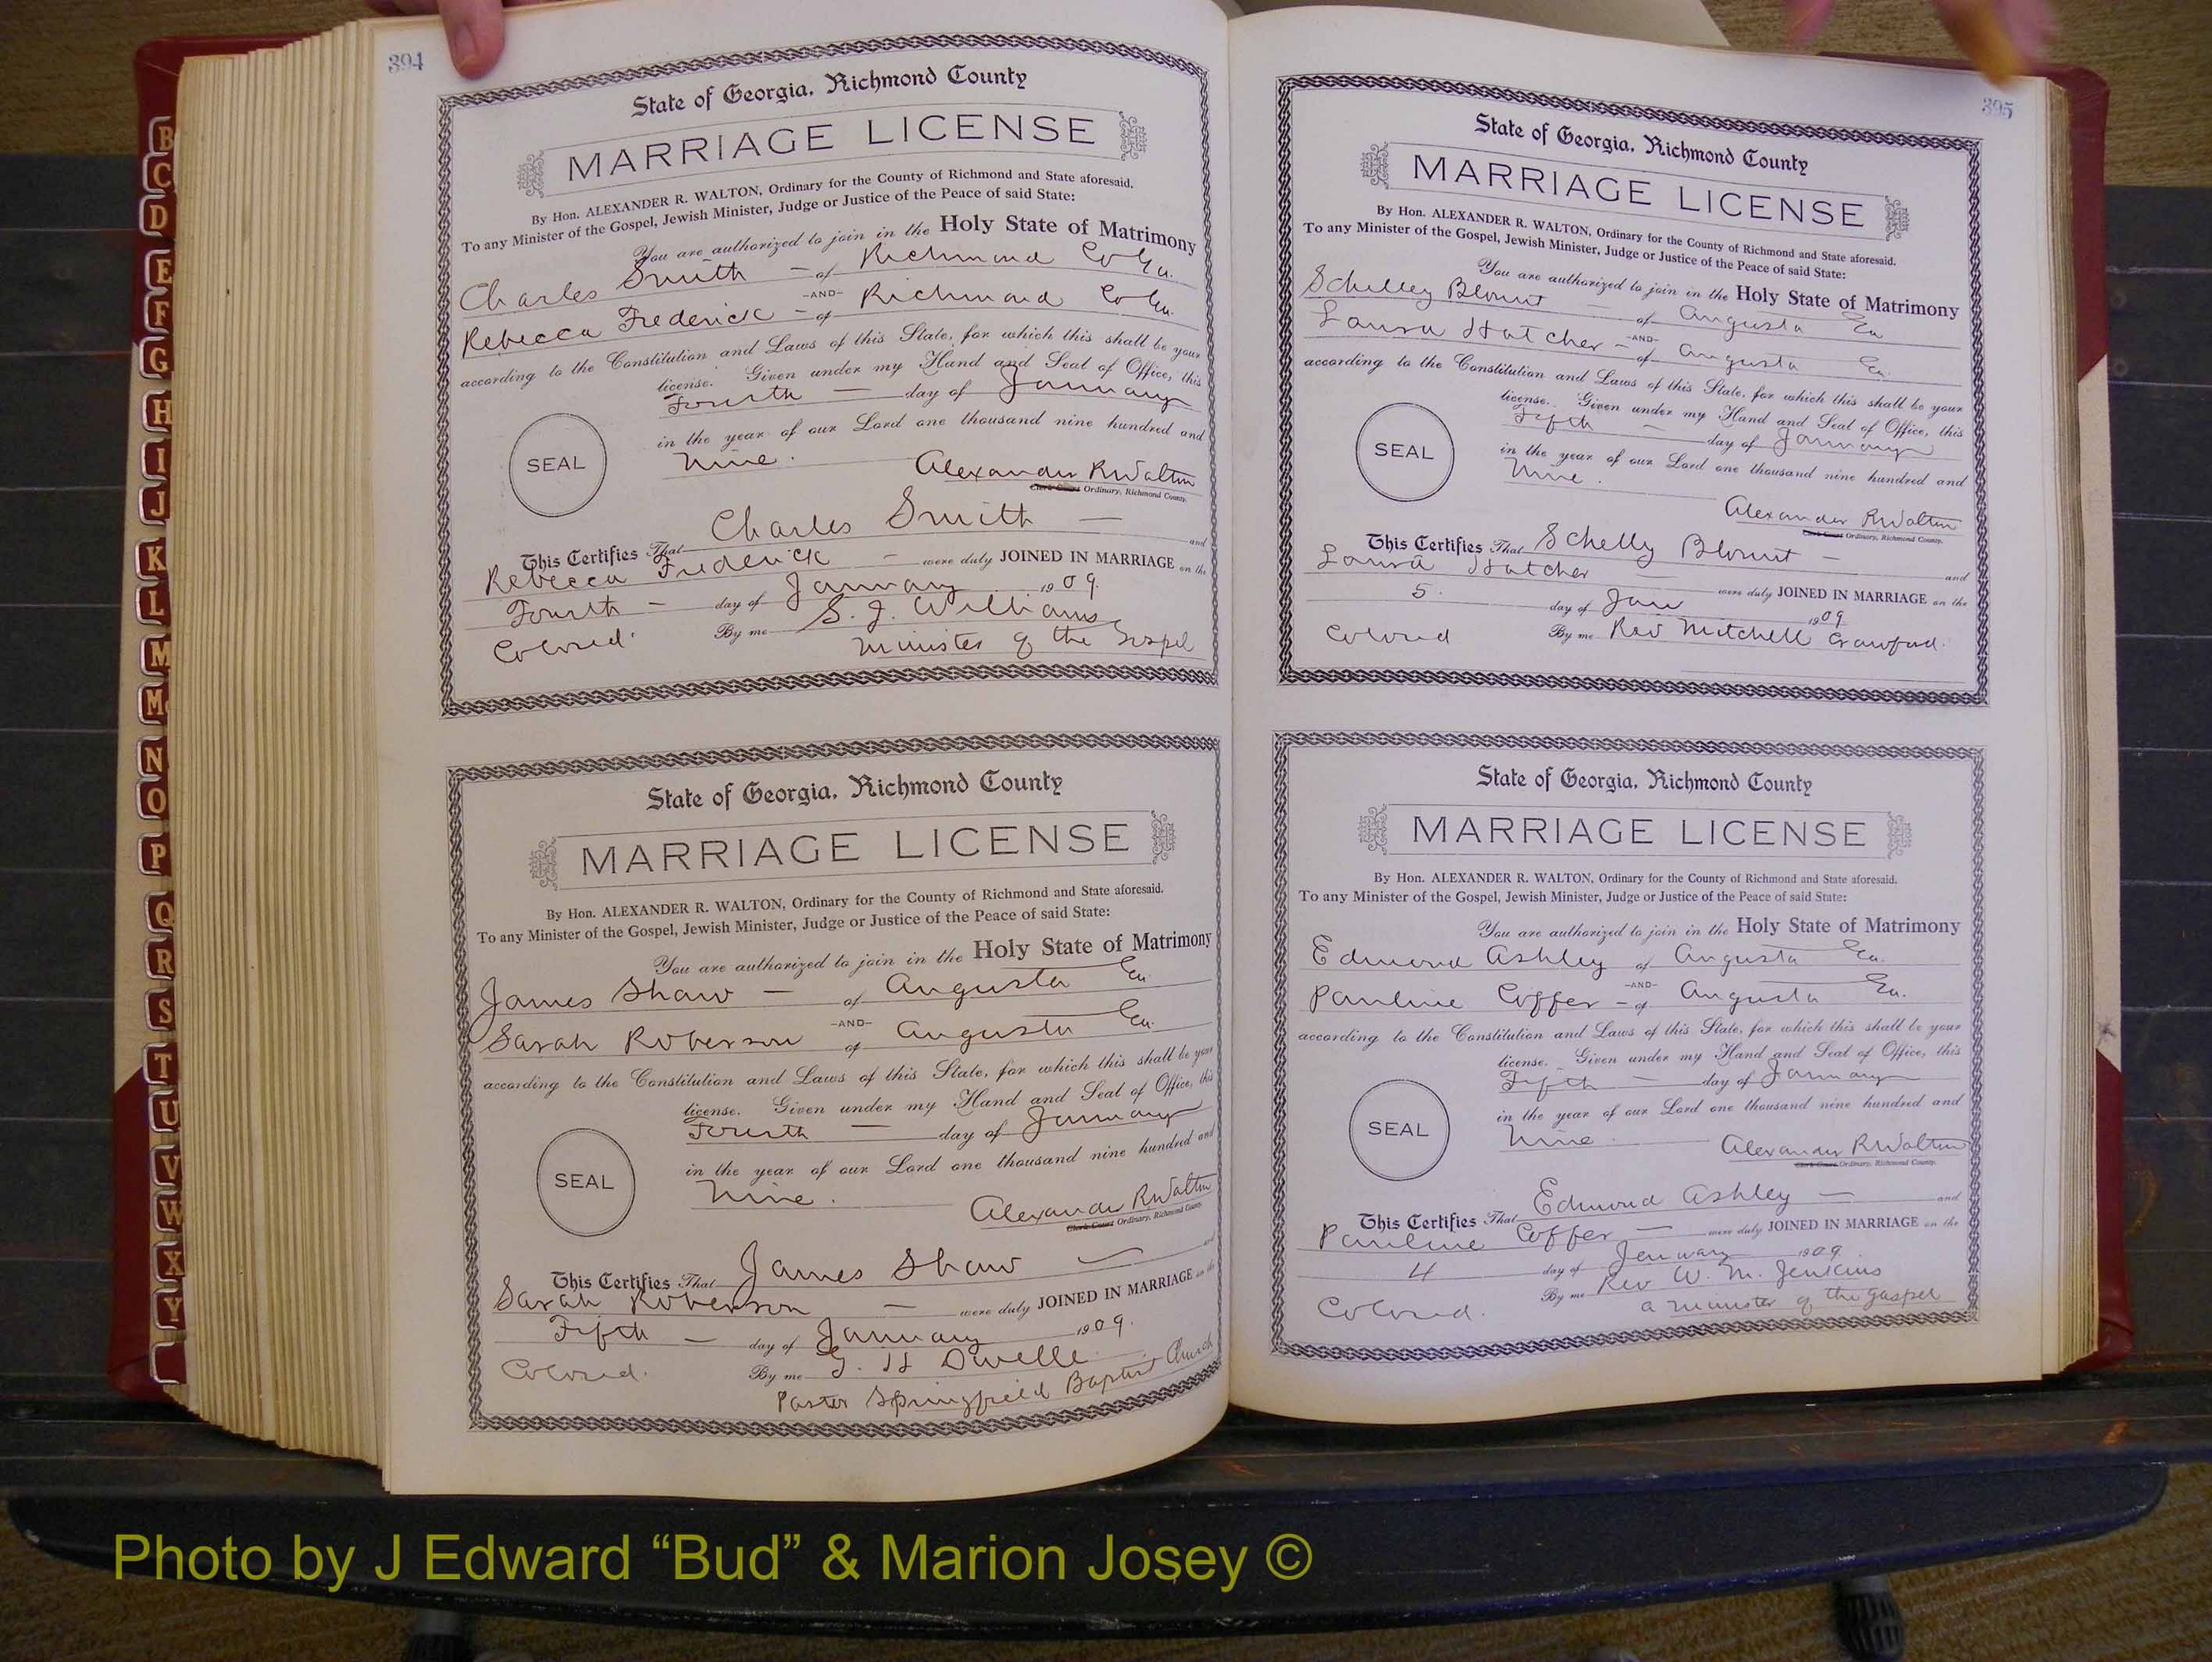 394
State of Georgia, Richmond County
MARRIAGE LICENSE
By Hon. ALEXANDER R. WALTON, Ordinary for the County of Richmond and State aforesaid.
To any Minister of the Gospel, Jewish Minister, Judge or Justice of the Peace of said State:
You are authorized to join in the Holy State of Matrimony
Charles Smith - of Richmond Co Ga.
-AND-
Rebecca Frederick - of Richmond Co Ga.
according to the Constitution and Laws of this State, for which this shall be your
license. Given under my Hand and Seal of Office, this
Fourth - day of January
in the year of our Lord one thousand nine hundred and
SEAL
Nine.
Alexander R Walton
Clerk Court Ordinary, Richmond County.
This Certifies That Charles Smith - and
Rebecca Frederick - were duly JOINED IN MARRIAGE on the
Fourth - day of January 1909.
Colored. By me S. J. Williams
Minister of the Gospel
State of Georgia, Richmond County
MARRIAGE LICENSE
By Hon. ALEXANDER R. WALTON, Ordinary for the County of Richmond and State aforesaid.
To any Minister of the Gospel, Jewish Minister, Judge or Justice of the Peace of said State:
You are authorized to join in the Holy State of Matrimony
James Shaw - of Augusta Ga.
-AND-
Sarah Roberson of Augusta Ga.
according to the Constitution and Laws of this State, for which this shall be your
license. Given under my Hand and Seal of Office, this
Fourth - day of January
in the year of our Lord one thousand nine hundred and
SEAL
Nine.
Alexander R Walton
Clerk Court Ordinary, Richmond County
This Certifies That James Shaw - and
Sarah Roberson - were duly JOINED IN MARRIAGE on the
Fifth - day of January 1909.
Colored. By me G. H Dwelle
Paster Springfield Baptist Church
395
State of Georgia, Richmond County
MARRIAGE LICENSE
By Hon. ALEXANDER R. WALTON, Ordinary for the County of Richmond and State aforesaid.
To any Minister of the Gospel, Jewish Minister, Judge or Justice of the Peace of said State:
You are authorized to join in the Holy State of Matrimony
Schelley Blount of Augusta Ga
-AND-
Laura Hatcher - of Augusta Ga.
according to the Constitution and Laws of this State, for which this shall be your
license. Given under my Hand and Seal of Office, this
Fifth - day of January
in the year of our Lord one thousand nine hundred and
SEAL
Nine.
Alexander R Walton
Clerk Court Ordinary, Richmond County.
This Certifies That Schelly Blount - and
Laura Hatcher were duly JOINED IN MARRIAGE on the
5. day of Jan 1909
Colored By me Rev Mitchell Crawford.
State of Georgia, Richmond County
MARRIAGE LICENSE
By Hon. ALEXANDER R. WALTON, Ordinary for the County of Richmond and State aforesaid.
To any Minister of the Gospel, Jewish Minister, Judge or Justice of the Peace of said State:
You are authorized to join in the Holy State of Matrimony
Edmond Ashley of Augusta Ga.
-AND-
Pauline Coffer - of Augusta Ga.
according to the Constitution and Laws of this State, for which this shall be your
license. Given under my Hand and Seal of Office, this
Fifth - day of January
in the year of our Lord one thousand nine hundred and
SEAL
Nine.
Alexander R Walton
Clerk Court Ordinary, Richmond County.
This Certifies That Edmond Ashley - and
Pauline Coffer - were duly JOINED IN MARRIAGE on the
4 day of Jenuary 1909.
Colored. By me Rev W. M. Jenkins
a minister of the gaspel
B
C
D
E
F
G
H
I
J
K
L
M
Mc
N
O
P
Q
R
S
T
U
V
W
X
Y
Photo by J Edward “Bud” & Marion Josey ©